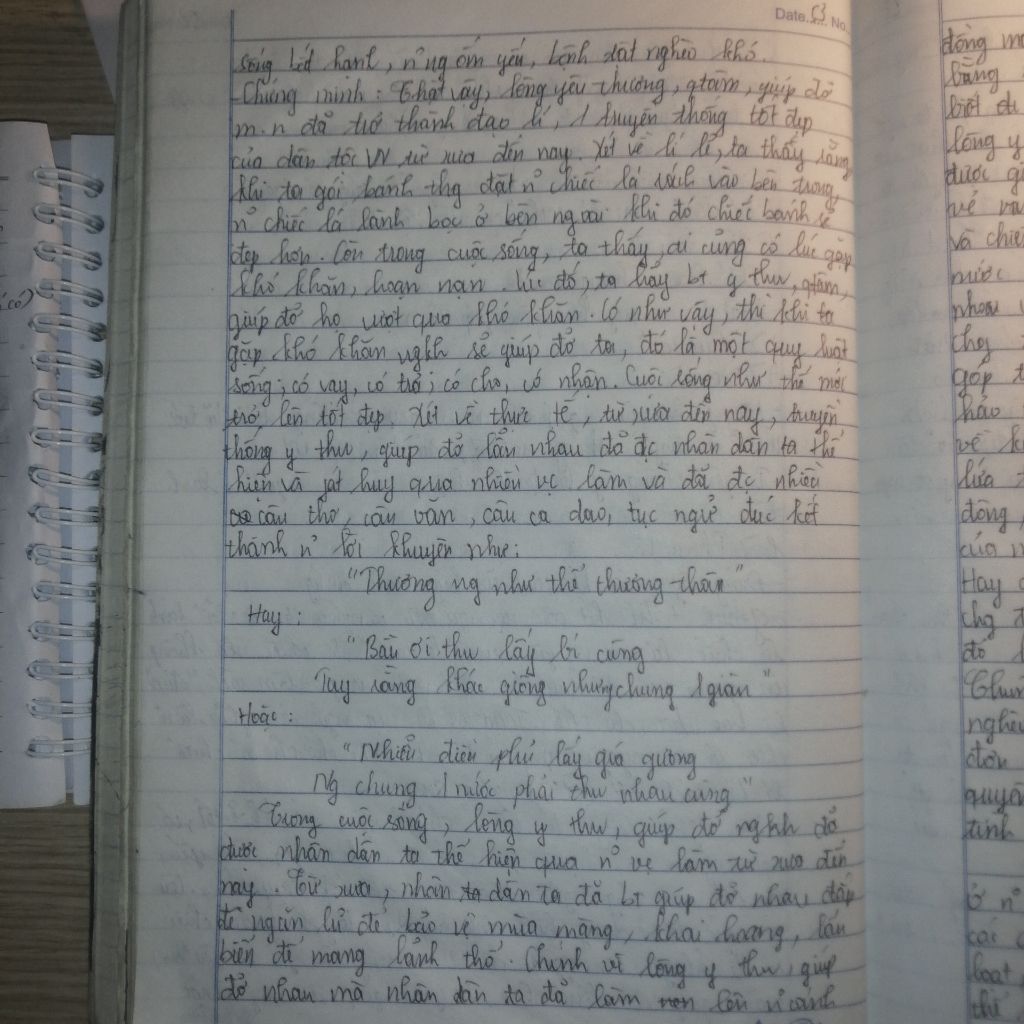 Date 63 No
sống bất hạnh, n~ ng ốm yếu, bệnh tật nghèo khó.
- Chứng minh: Thật vậy, lòng yêu thương, qtâm, giúp đỡ
m.n đã trở thành đạo lí, 1 truyền thống tốt đẹp
của dân tộc VN từ xưa đến nay. Xét về lí lẽ, ta thấy rằng
khi ta gói bánh thg đặt n~ chiếc lá rách vào bên trong
n~ chiếc lá lành bọc ở bên ngoài khi đó chiếc bánh sẽ
đẹp hơn. Còn trong cuộc sống, ta thấy ai cũng có lúc gặp
khó khăn, hoạn nạn. Lúc đó, ta hãy bt y thư, qtâm,
giúp đỡ họ vượt qua khó khăn. Có như vậy, thì khi ta
gặp khó khăn ngkh sẽ giúp đỡ ta, đó là một quy luật
sống; có vay, có trả; có cho, có nhận. Cuộc sống như thế mới
trở lên tốt đẹp. Xét về thực tế, từ xưa đến nay, truyền
thống y thư, giúp đỡ lẫn nhau đã đc nhân dân ta thể
hiện và fát huy qua nhiều vc làm và đã đc nhiều
câu thơ, câu văn, câu ca dao, tục ngữ đúc kết
thành n~ lời khuyên như:
"Thương ng như thể thương thân"
Hay:
"Bầu ơi thư lấy bí cùng
Tuy rằng khác giống nhưng chung 1 giàn"
Hoặc:
"Nhiễu điều phủ lấy giá gương
Ng chung 1 nước phải thư nhau cùng"
Trong cuộc sống, lòng y thư, giúp đỡ ngkh đã
được nhân dân ta thể hiện qua n~ vc làm từ xưa đến
nay. Từ xưa, nhân dân ta đã bt giúp đỡ nhau đắp
đê ngăn lũ để bảo vệ mùa màng, khai hoang, lấn
biển để mang lãnh thổ. Chính vì lòng y thư, giúp
đỡ nhau mà nhân dân ta đã làm nên lên n~ cánh
đồng
bằng
biết
lòng y
được
về
và
nước
nhau
góp
hào
về
lúa
đồng,
của
Hay
chg
đó
nghèo
đơn
quyên
tinh
Ở n~
các
loạt
thể